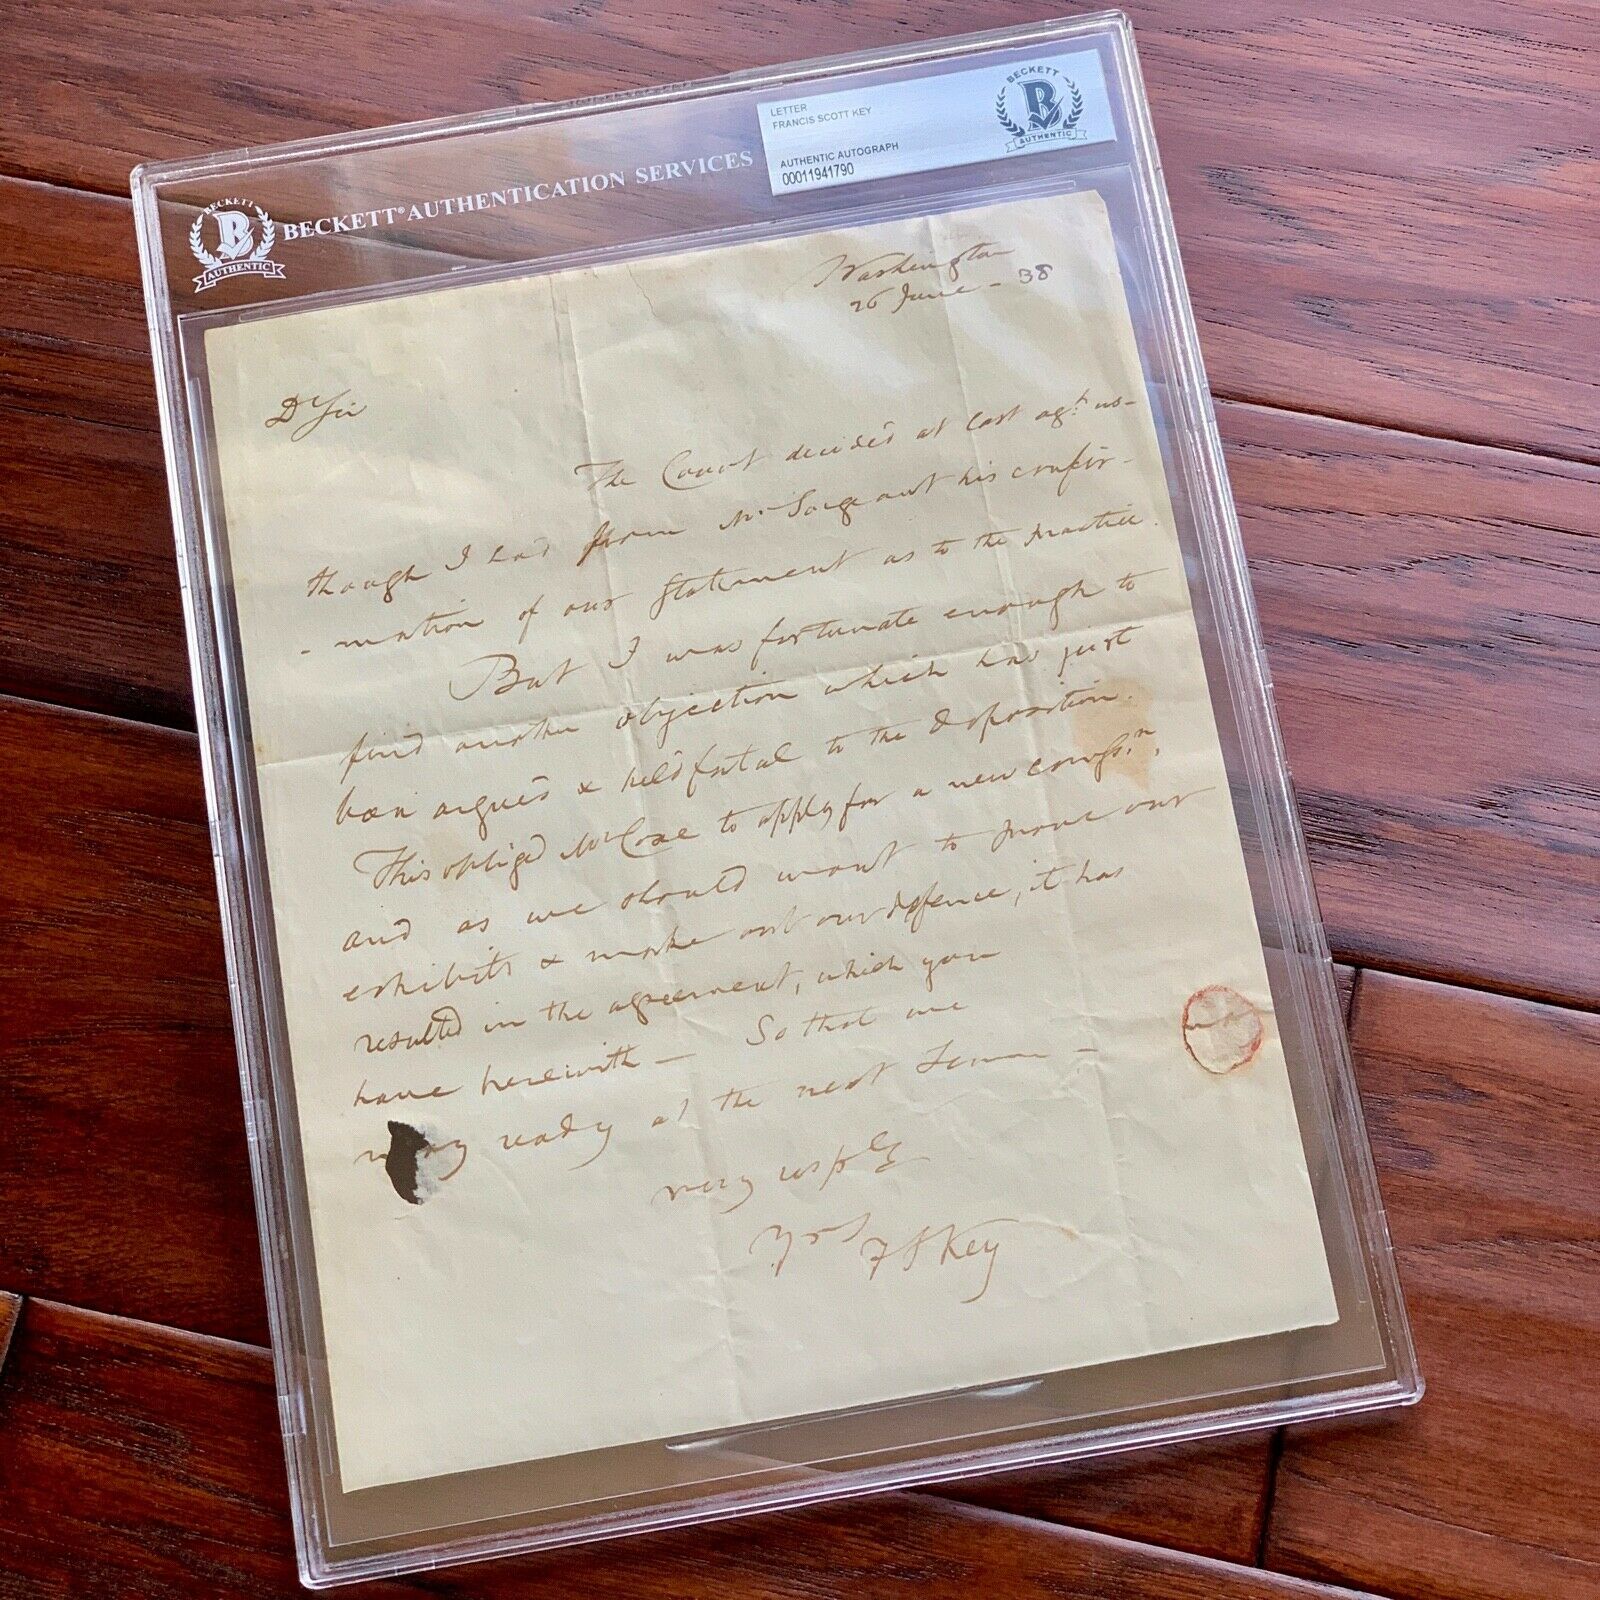 BECKETT
B
AUTHENTIC
BECKETT® AUTHENTICATION SERVICES
LETTER
FRANCIS SCOTT KEY
AUTHENTIC AUTOGRAPH
00011941790
BECKETT
B
AUTHENTIC
Washington
26 June - 38
Dr Sir
The Court decided at last agt. us -
though I had from Mr. Sergeant his confir-
- mation of our statement as to the practice.
But I was fortunate enough to
find another objection which has just
been argued & held fatal to the deposition.
This obliged Mr Coxe to apply for a new
and as we should want to prove our
exhibits & make out our defence, it has
resulted in the agreement, which you
have herewith — So that we
ready at the next
very resply
Yrs F S Key